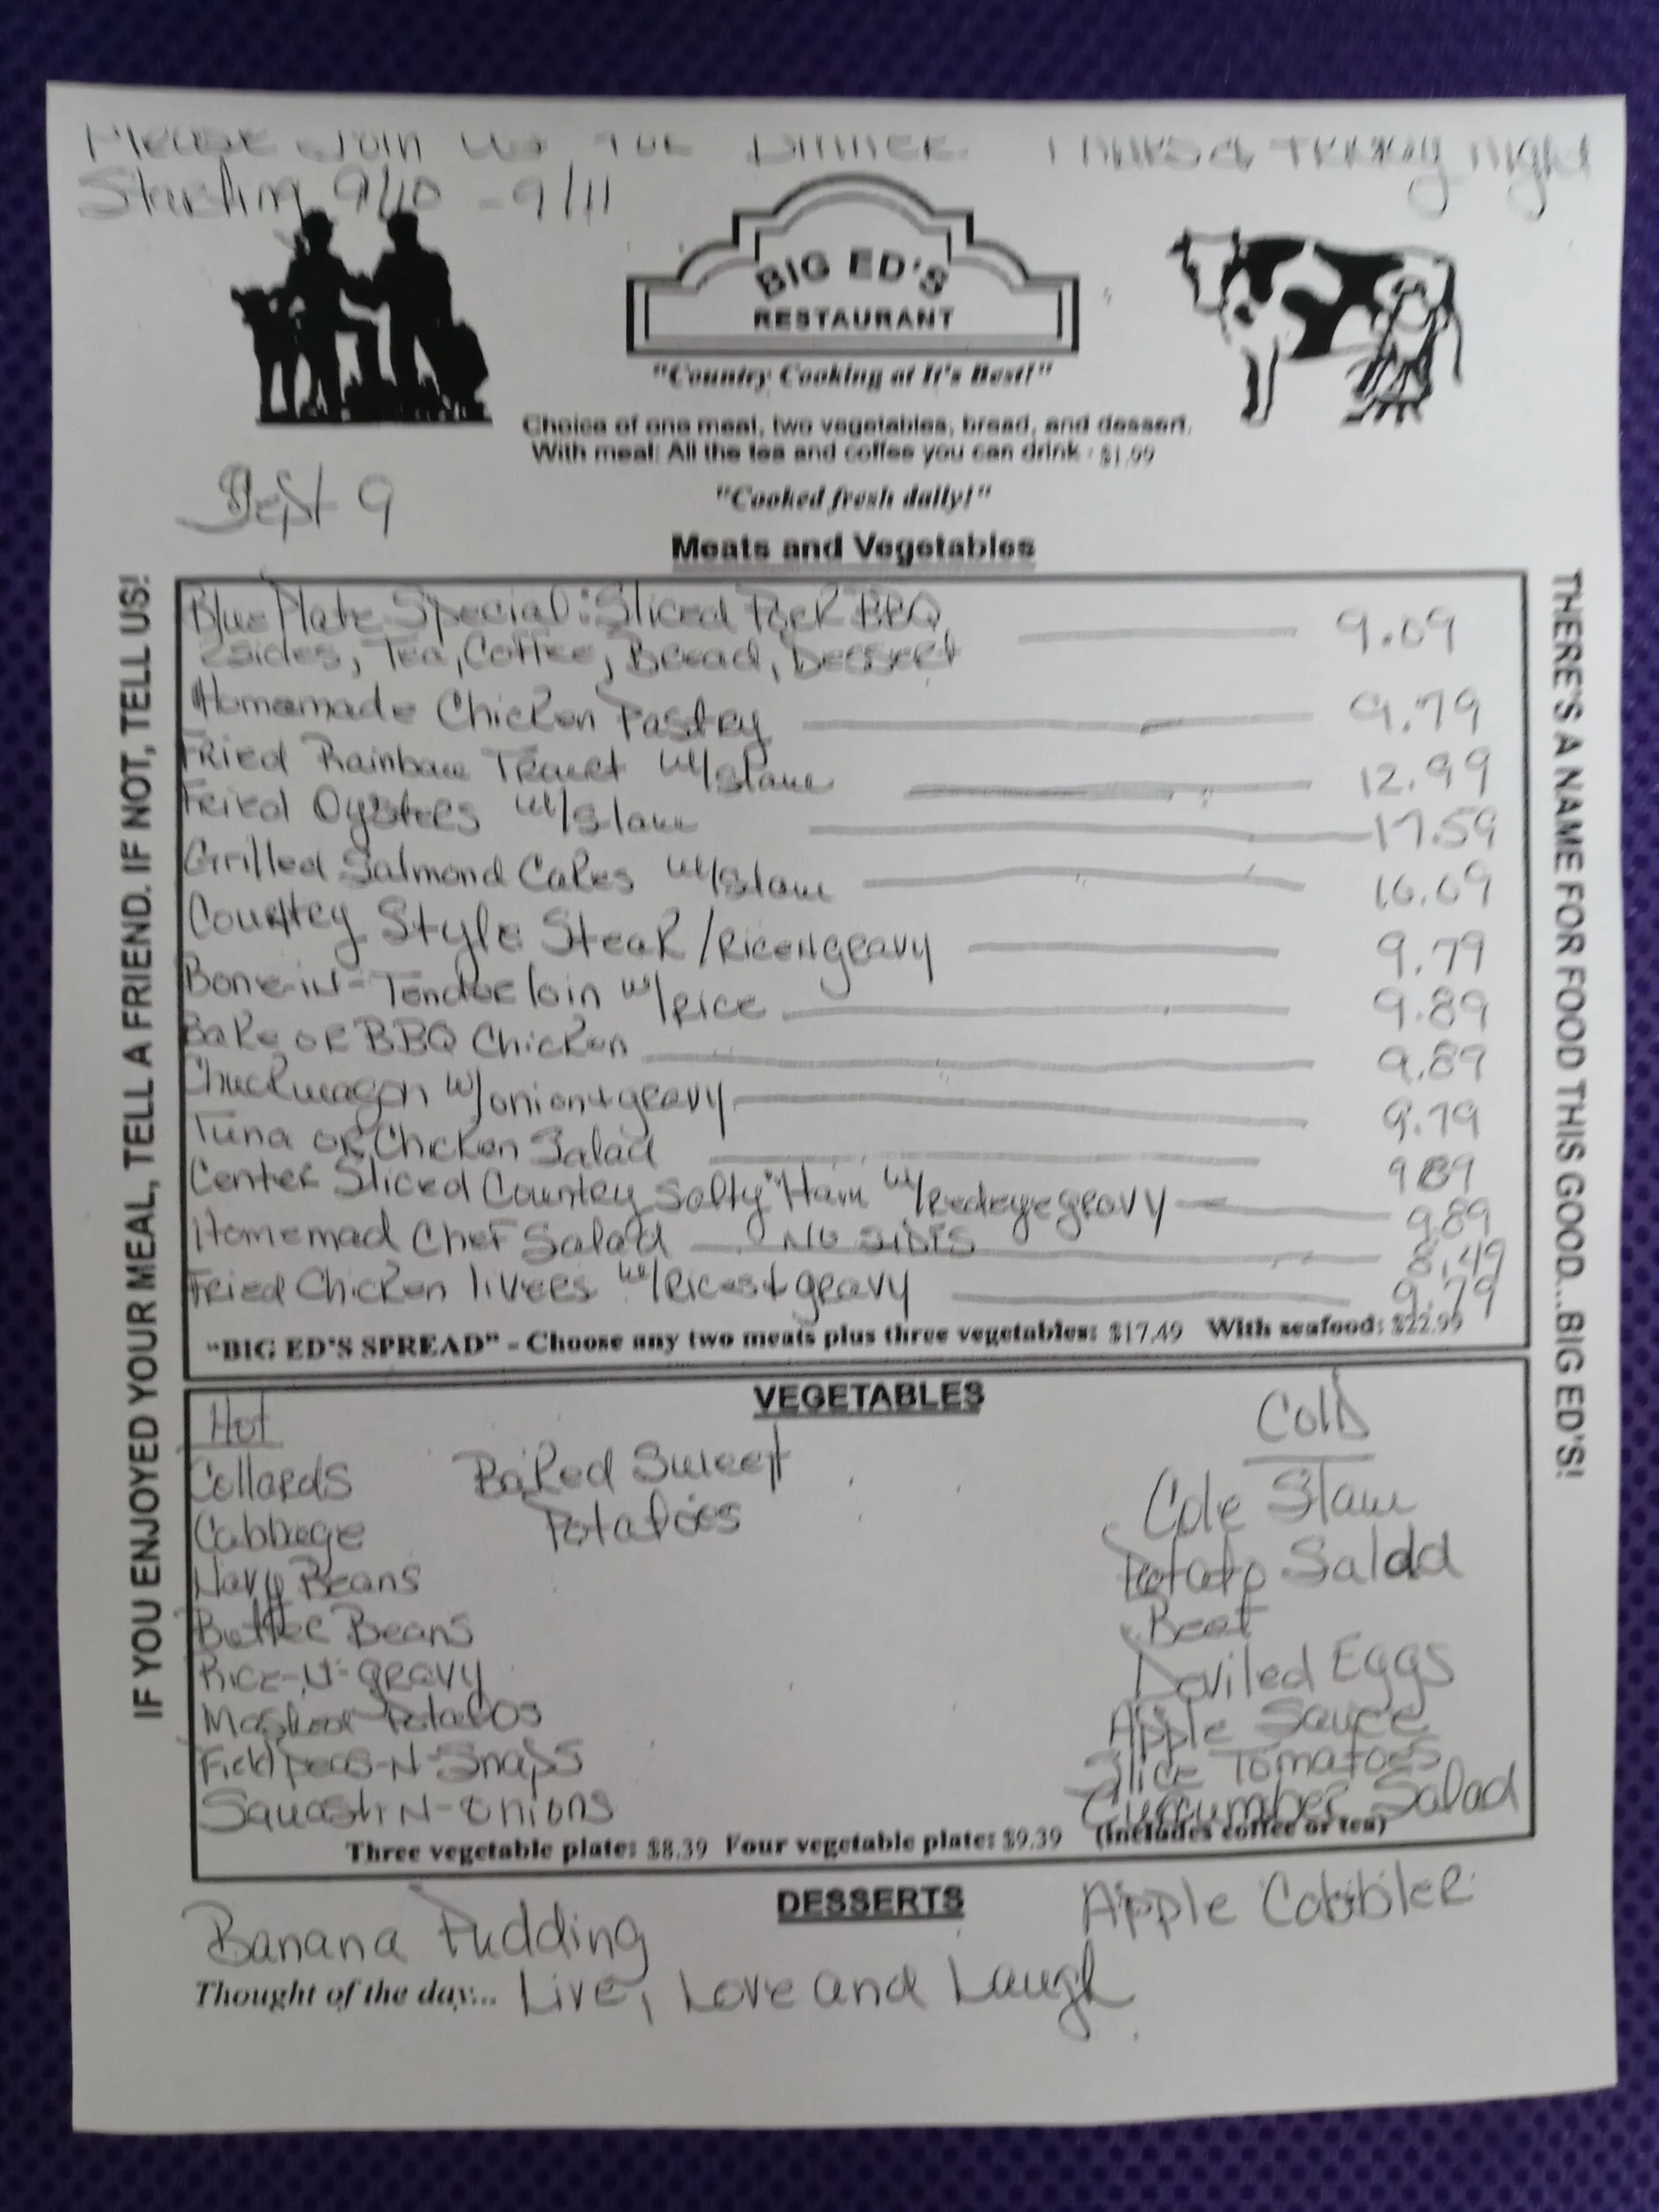 Please Join us for Dinner Thurs & Friday night
Starting 9/10 - 9/11
BIG ED'S
RESTAURANT
"Country Cooking at It's Best!"
Choice of one meat, two vegetables, bread, and dessert.
With meal: All the tea and coffee you can drink - $1.99
Sept 9
"Cooked fresh daily!"
Meats and Vegetables
IF YOU ENJOYED YOUR MEAL, TELL A FRIEND. IF NOT, TELL US!
THERE'S A NAME FOR FOOD THIS GOOD...BIG ED'S!
Blue Plate Special: Sliced Pork BBQ 9.09
2 sides, Tea, Coffee, Bread, Dessert
Homemade Chicken Pastry 9.79
Fried Rainbow Trout w/slaw 12.99
Fried Oysters w/slaw 17.59
Grilled Salmond Cakes w/slaw 16.09
Country Style Steak / Rice n gravy 9.79
Bone-in-Tenderloin w/rice 9.89
Bake or BBQ Chicken 9.89
Chuckwagon w/onion & gravy 9.79
Tuna or Chicken Salad 9 89
Center Sliced Country "Salty" Ham w/redeye gravy 9.89
Homemad Chef Salad NO SIDES 8.49
Fried Chicken livers w/Rices & gravy 9.79
"BIG ED'S SPREAD" - Choose any two meats plus three vegetables: $17.49 With seafood: $22.99
VEGETABLES
Hot
Cold
Collards Baked Sweet Cole Slaw
Cabbage Potatoes Potato Salad
Navy Beans Beet
Butter Beans Deviled Eggs
Rice-N-gravy Apple Sauce
Mashed Potatos Slice Tomatoes
Field peas-N-Snaps Curcumber Salad
Squash N-Onions
Three vegetable plate: $8.39 Four vegetable plate: $9.39 (Includes coffee or tea)
DESSERTS
Banana Pudding Apple Cobbler
Thought of the day... Live, Love and Laugh